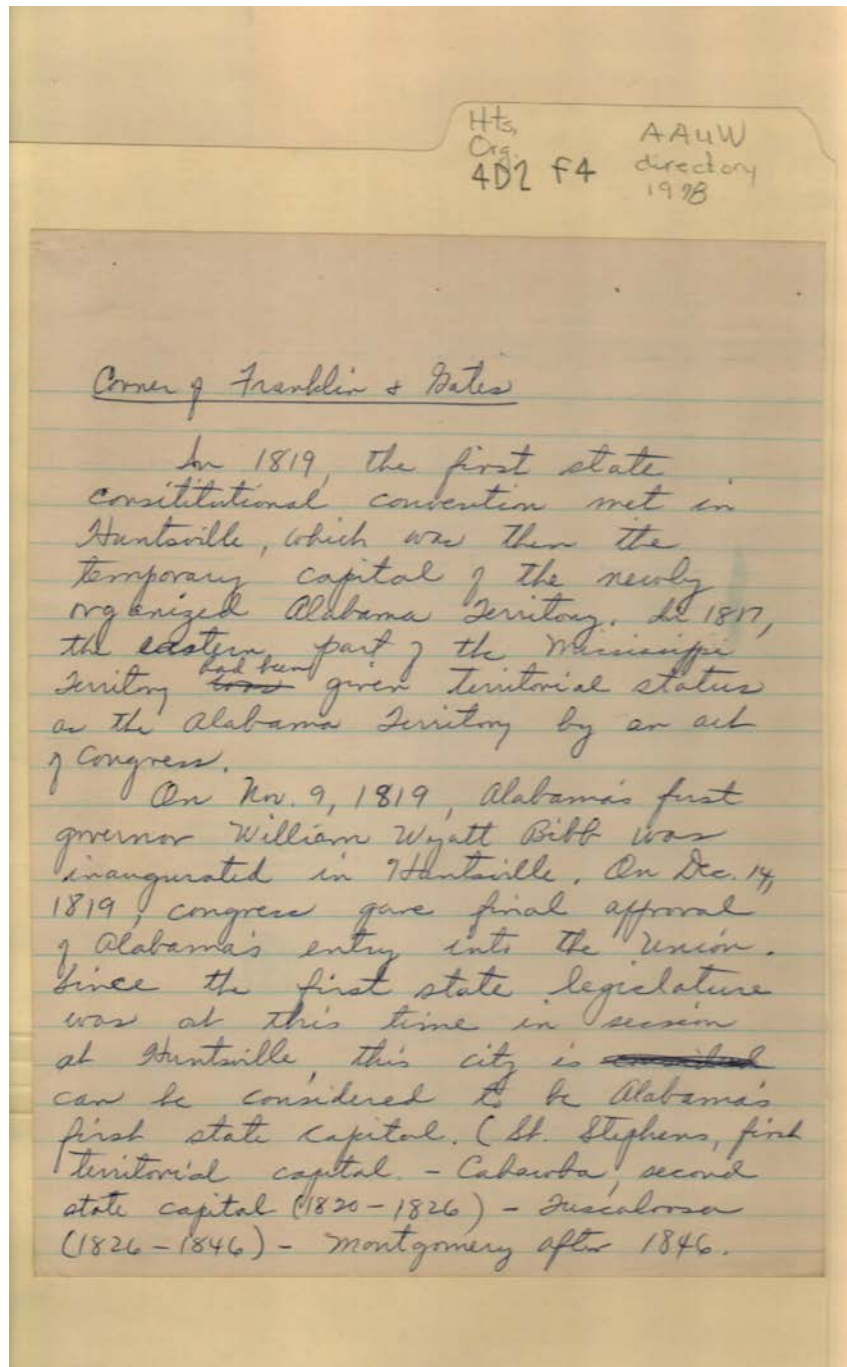 Hts,
Org.
4D2 F4
AAUW
directory
1978
Corner of Franklin & Gates
In 1819, the first state
consititutional convention met in
Huntsville, which was then the
temporary capital of the newly
organized Alabama Territory. In 1817,
the eastern part of the Mississippi
Territory had been given territorial status
as the Alabama Territory by an act
of Congress.
On Nov. 9, 1819, Alabama's first
governor William Wyatt Bibb was
inaugurated in Huntsville. On Dec. 14,
1819, congress gave final approval
of Alabama's entry into the Union.
Since the first state legislature
was at this time in session
at Huntsville, this city is
can be considered to be Alabama's
first state capital. (St. Stephens, first
territorial capital. - Cahawba, second
state capital (1820-1826) - Tuscaloosa
(1826-1846) - Montgomery after 1846.